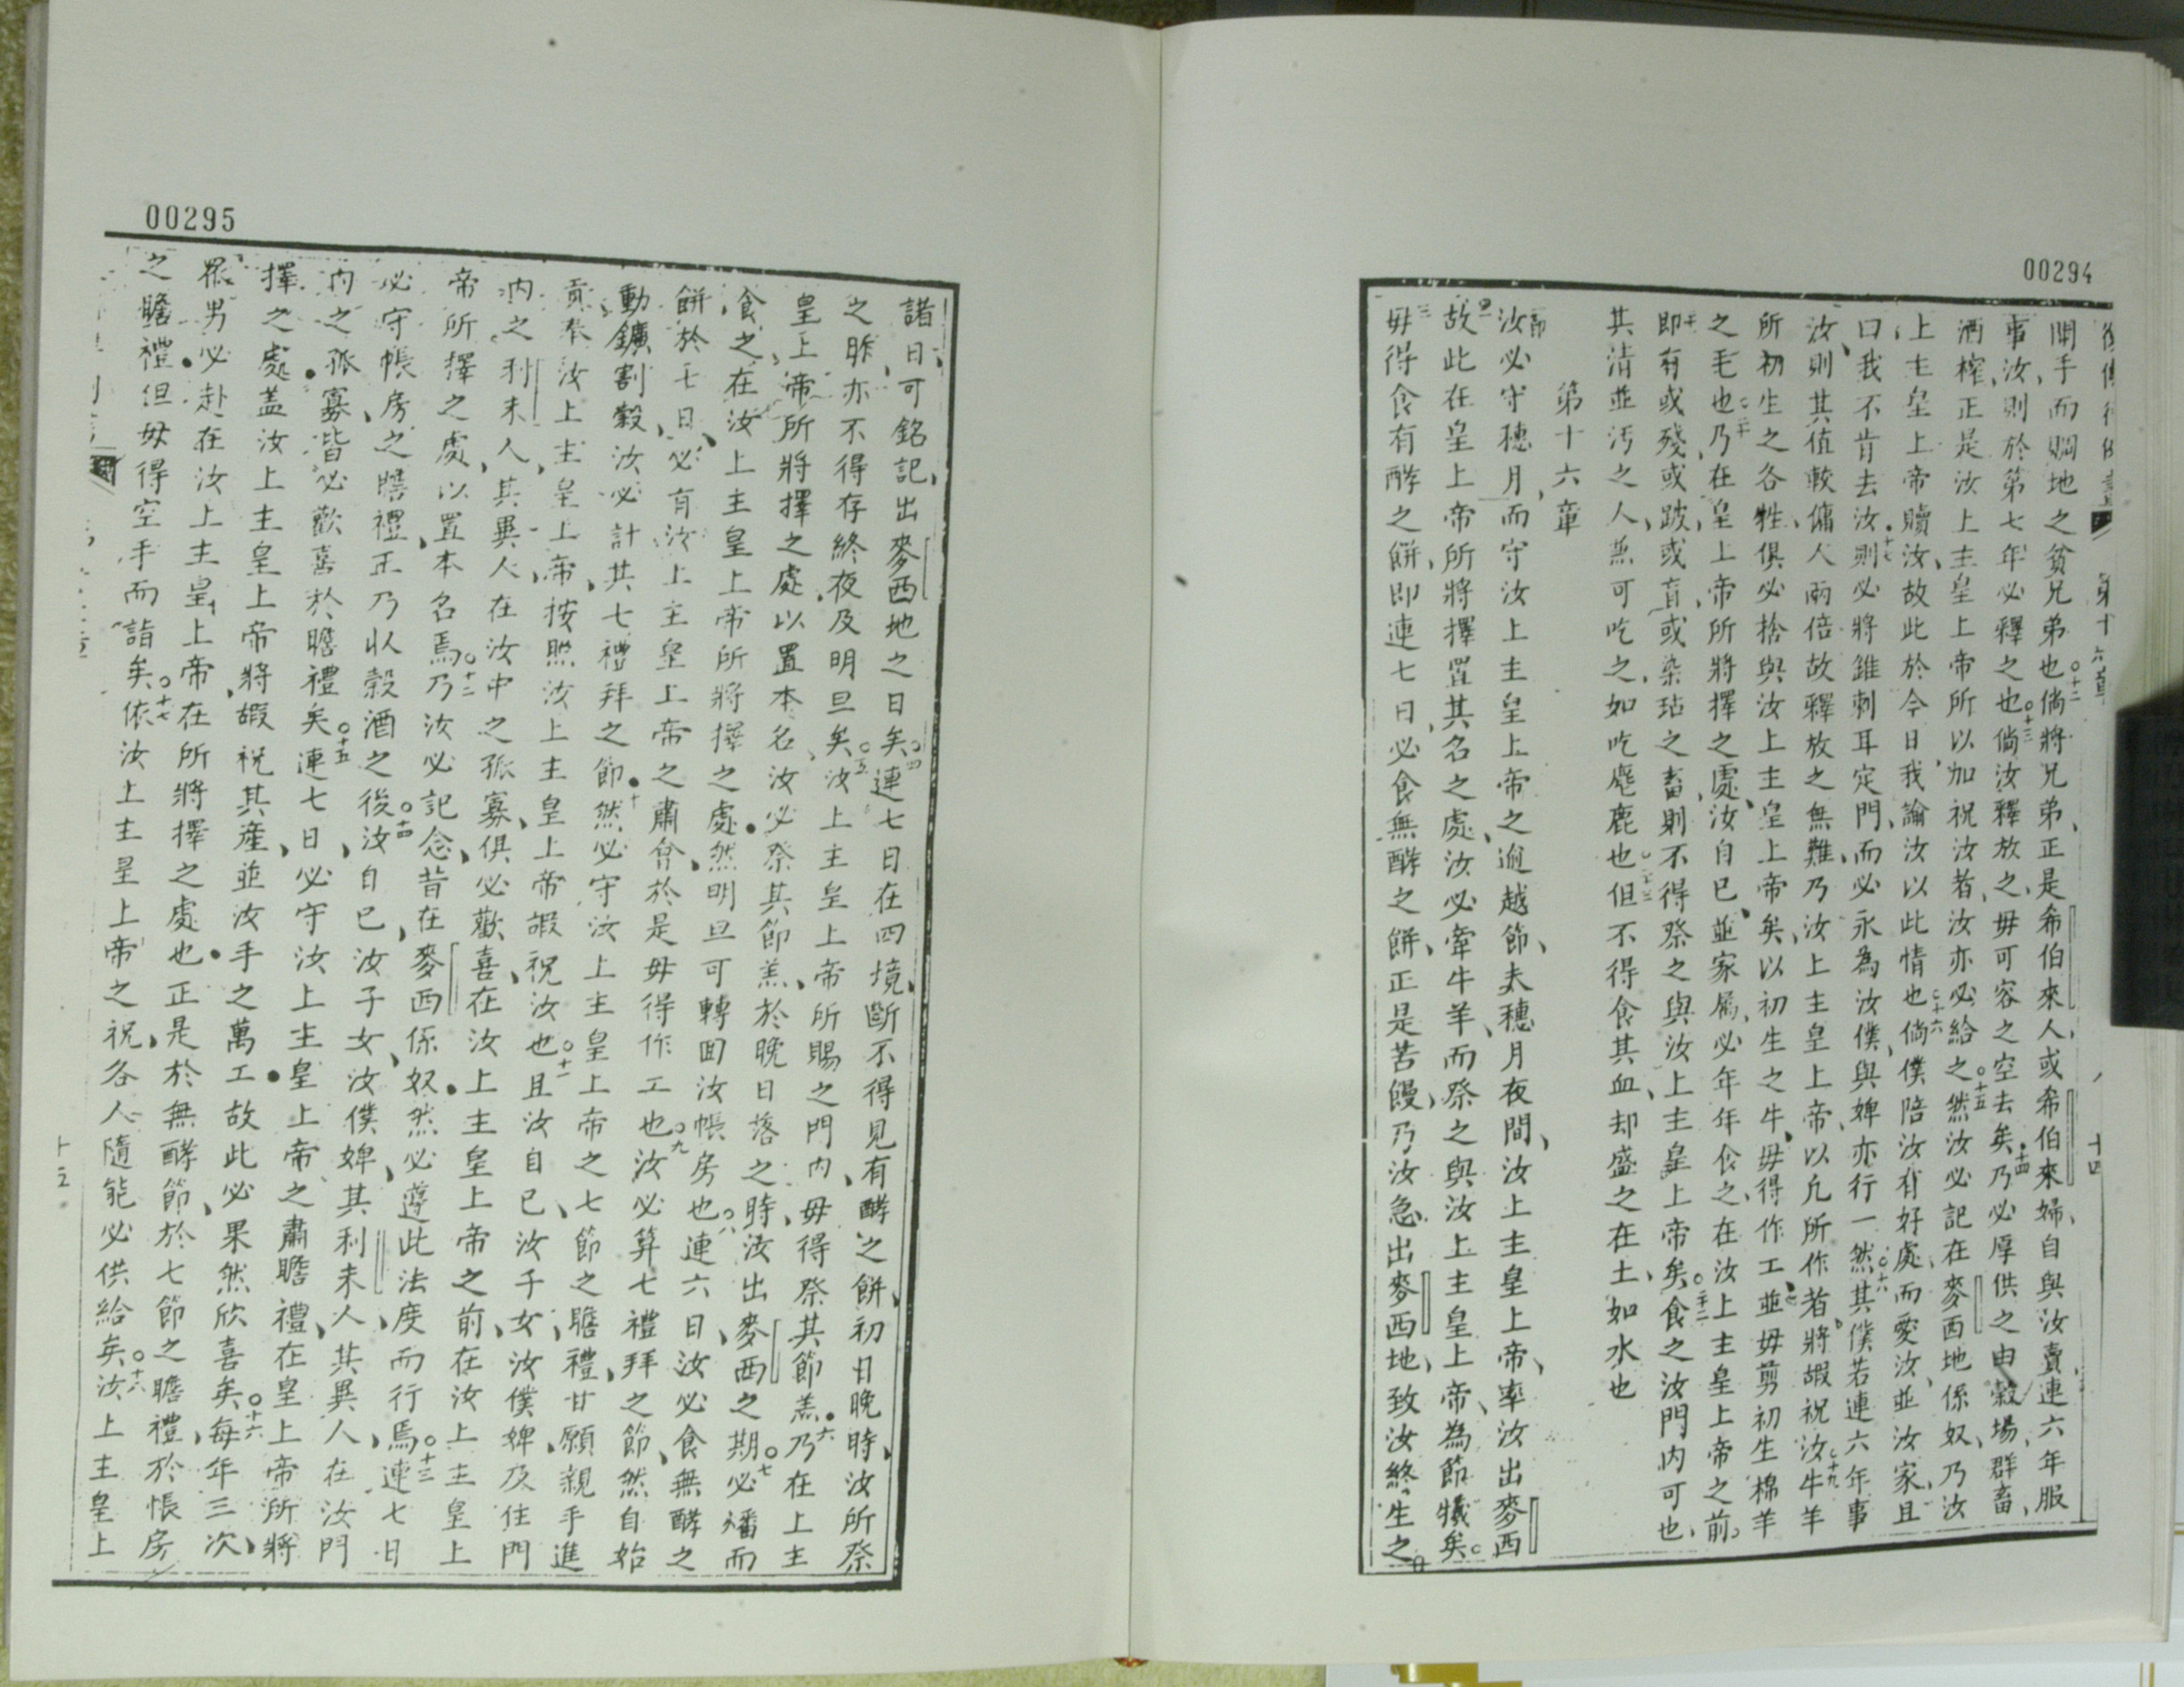 00294
第十六章
十四
開手而賙地之貧兄弟也○十二倘將兄弟、正是希伯來人、或希伯來婦、自與汝賣、連六年服
事汝、則於第七年必釋之也○十三倘汝釋放之、毋可容之空去矣○十四乃必厚供之由穀場、群畜、
酒榨、正是汝上主皇上帝所以加祝汝者、汝亦必給之○十五然汝必記在麥西地係奴、乃汝
上主皇上帝贖汝、故此於今日、我諭汝以此情也○十六倘僕陪汝有好處、而愛汝、並汝家、且
曰我不肯去汝○十七則必將錐刺耳定門、而必永為汝僕、與婢亦行一然○十八其僕若連六年事
汝、則其值較傭人兩倍、故釋放之無難、乃汝上主皇上帝、以凡所作者、將嘏祝汝○十九牛羊
所初生之各牲、俱必捨與汝上主皇上帝矣、以初生之牛、毋得作工、並毋剪初生棉羊
之毛也○二十乃在皇上帝所將擇之處、汝自己、並家屬、必年年食之、在汝上主皇上帝之前。
即有或殘、或跛、或盲、或染玷之畜、則不得祭之與汝上主皇上帝矣○二十二食之汝門內可也、
其清並污之人、兼可吃之、如吃麀鹿也○二十三但不得食其血、却盛之在土、如水也
第十六章
汝必守穗月、而守汝上主皇上帝之逾越節、夫穗月夜間、汝上主皇上帝、率汝出麥西
故此在皇上帝所將擇置其名之處、汝必牽牛羊、而祭之與汝上主皇上帝、為節犧矣。
三毋得食有酵之餅、即連七日、必食無酵之餅、正是苦饅、乃汝急出麥西地、致汝終生之
00295
諸日、可銘記、出麥西地之日矣○四連七日在四境、斷不得見有酵之餅、初日晚時、汝所祭
之胙、亦不得存終夜及明旦矣○五汝上主皇上帝所賜之門內、毋得祭其節羔○六乃在上主
皇上帝所將擇之處、以置本名、汝必祭其節羔、於晚日落之時、汝出麥西之期○七必燔而
食之、在汝上主皇上帝所將擇之處、然明旦可轉回汝帳房也○八連六日、汝必食無酵之
餅、於七日、必有汝上主皇上帝之肅會、於是毋得作工也○九汝必算七禮拜之節、然自始
動鐮割穀、汝必計其七禮拜之節○十然必守汝上主皇上帝之七節之瞻禮、甘願親手進
貢奉汝上主皇上帝、按照汝上主皇上帝嘏祝汝也○十一且汝自己、汝子女、汝僕婢、及住門
內之利未人、其異人、在汝中之孤寡、俱必歡喜、在汝上主皇上帝之前、在汝上主皇上
帝所擇之處、以置本名焉○十二乃汝必記念昔在麥西係奴、然必遵此法度而行焉○十三連七日
必守帳房之瞻禮、正乃收穀酒之後○十四汝自己、汝子女、汝僕婢、其利未人、其異人、在汝門
內之孤寡、皆必歡喜於瞻禮矣○十五連七日必守汝上主皇上帝之肅瞻禮、在皇上帝所將
擇之處、蓋汝上主皇上帝將嘏祝其產、並汝手之萬工、故此必果然欣喜矣○十六每年三次、
眾男必赴在汝上主皇上帝、在所將擇之處也、正是於無酵節、於七節之瞻禮、於帳房
之瞻禮、但毋得空手而詣矣○十七依汝上主皇上帝之祝、各人隨能必供給矣○十八汝上主皇上